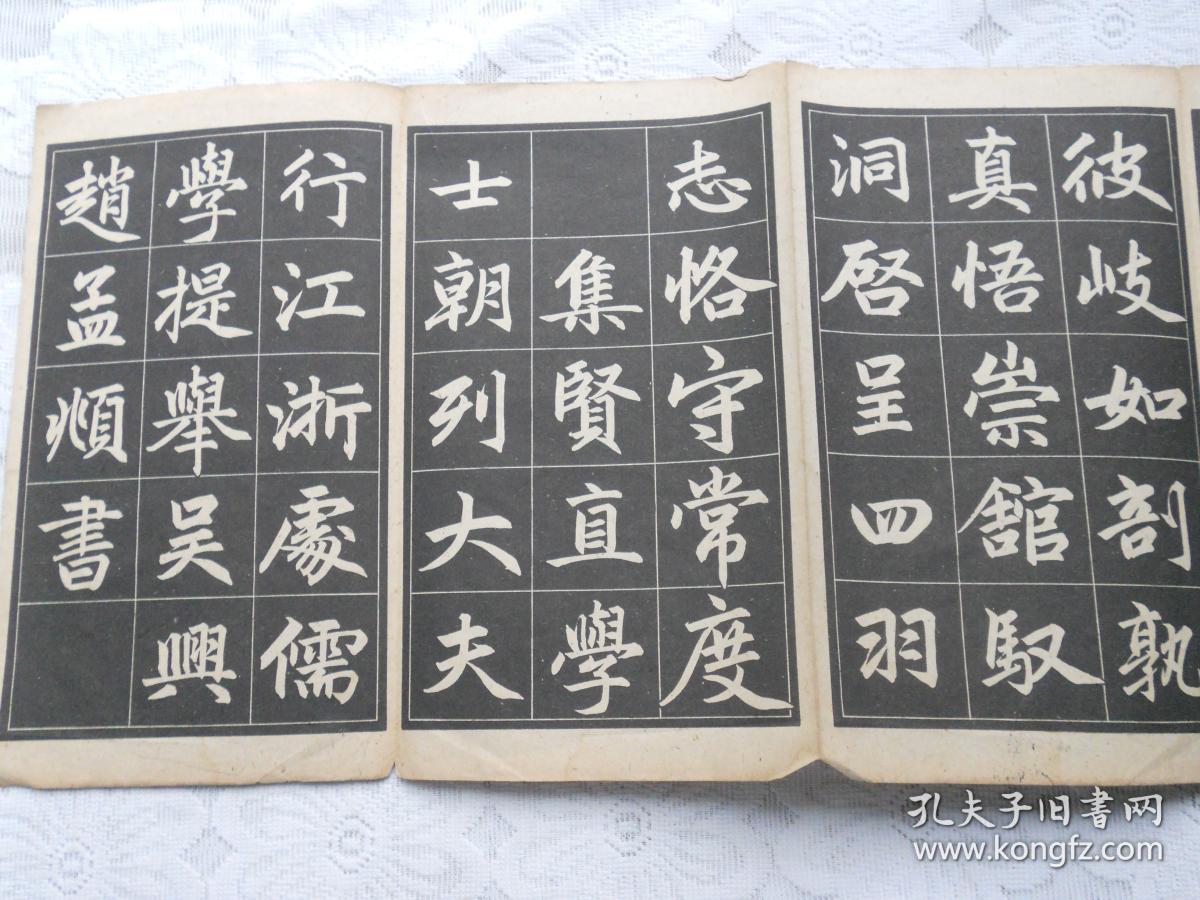 彼岐如剖孰
真悟崇館馭
洞啓呈四羽
志恪守常度
集賢直學
士朝列大夫
行江浙處儒
學提舉吴興
趙孟頫書
孔夫子旧书网
www.kongfz.com